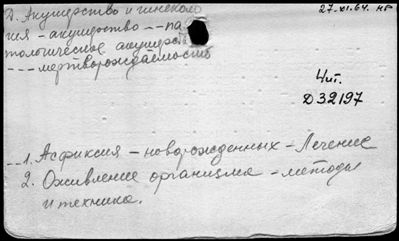 27.XI.64. нг
Д. Акушерство и гинеколо
гия - акушерство --- па
тологическое акушерст
--- мертворождаемость
Чит.
Д32197
--1. Асфиксия - новорожденных - Лечение
2. Оживление организма - методы
и техника.